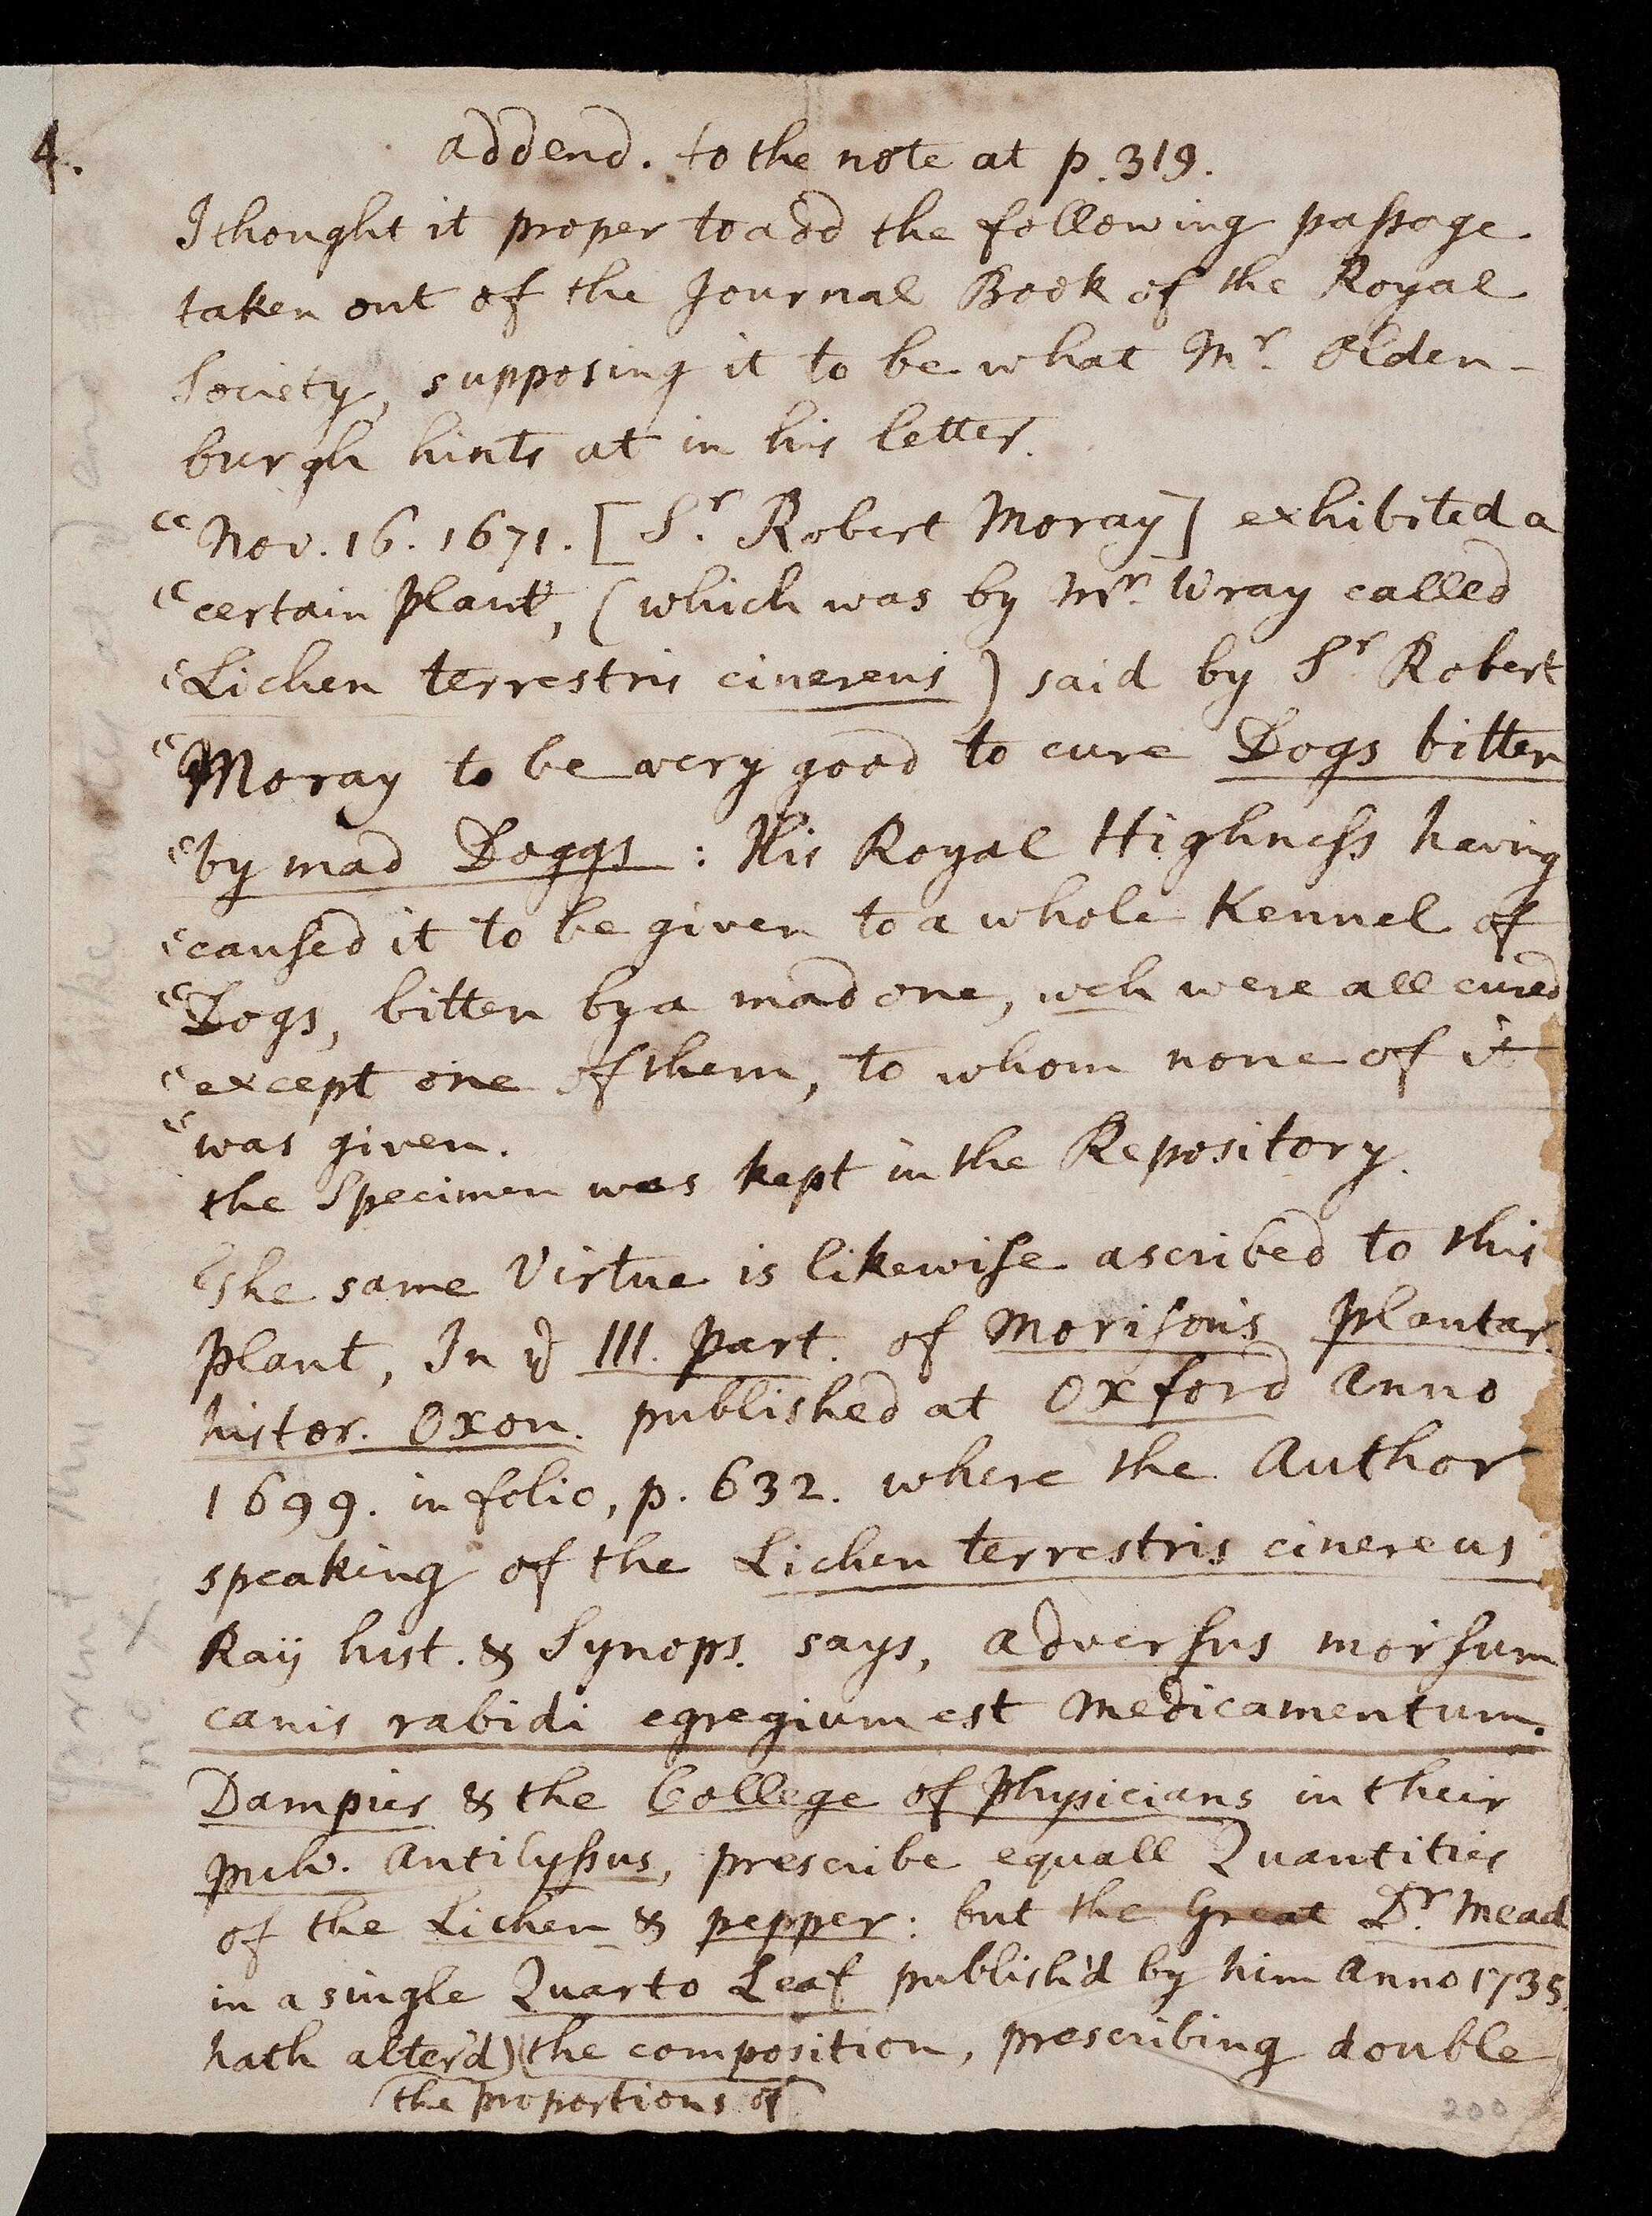 4.
addend. to the note at p. 319.
I thought it proper to add the following passage
taken out of the Journal Book of the Royal
Society, supposing it to be what Mr. Olden-
burgh hints at in his letter.
"Nov. 16. 1671. [Sr. Robert Moray] exhibited a
"certain plant, (which was by Mr. Wray called
"Lichen terrestris cinereus) said by Sr. Robert
"Moray to be very good to cure Dogs bitten
"by mad Doggs: His Royal Highness having
"caused it to be given to a whole Kennel of
"Dogs, bitten by a mad one, wch were all cured
"except one of them, to whom none of it
"was given.
the Specimen was kept in the Repository.
The same Virtue is likewise ascribed to this
plant, In ye III. Part. of Morison's Plantar.
histor. Oxon. published at Oxford Anno
1699. in folio, p. 632. where the Author
speaking of the Lichen terrestris cinereus
Raij hist. & Synops. says, adversus morsum
canis rabidi egregium est medicamentum.
Dampier & the College of Physicians in their
pulv. Antilyssus, prescribe equall Quantities
of the Lichen & pepper: but the Great Dr. Mead
in a single Quarto Leaf publish'd by him Anno 1735.
hath alter'd) (the composition, prescribing double
(the proportions of
200